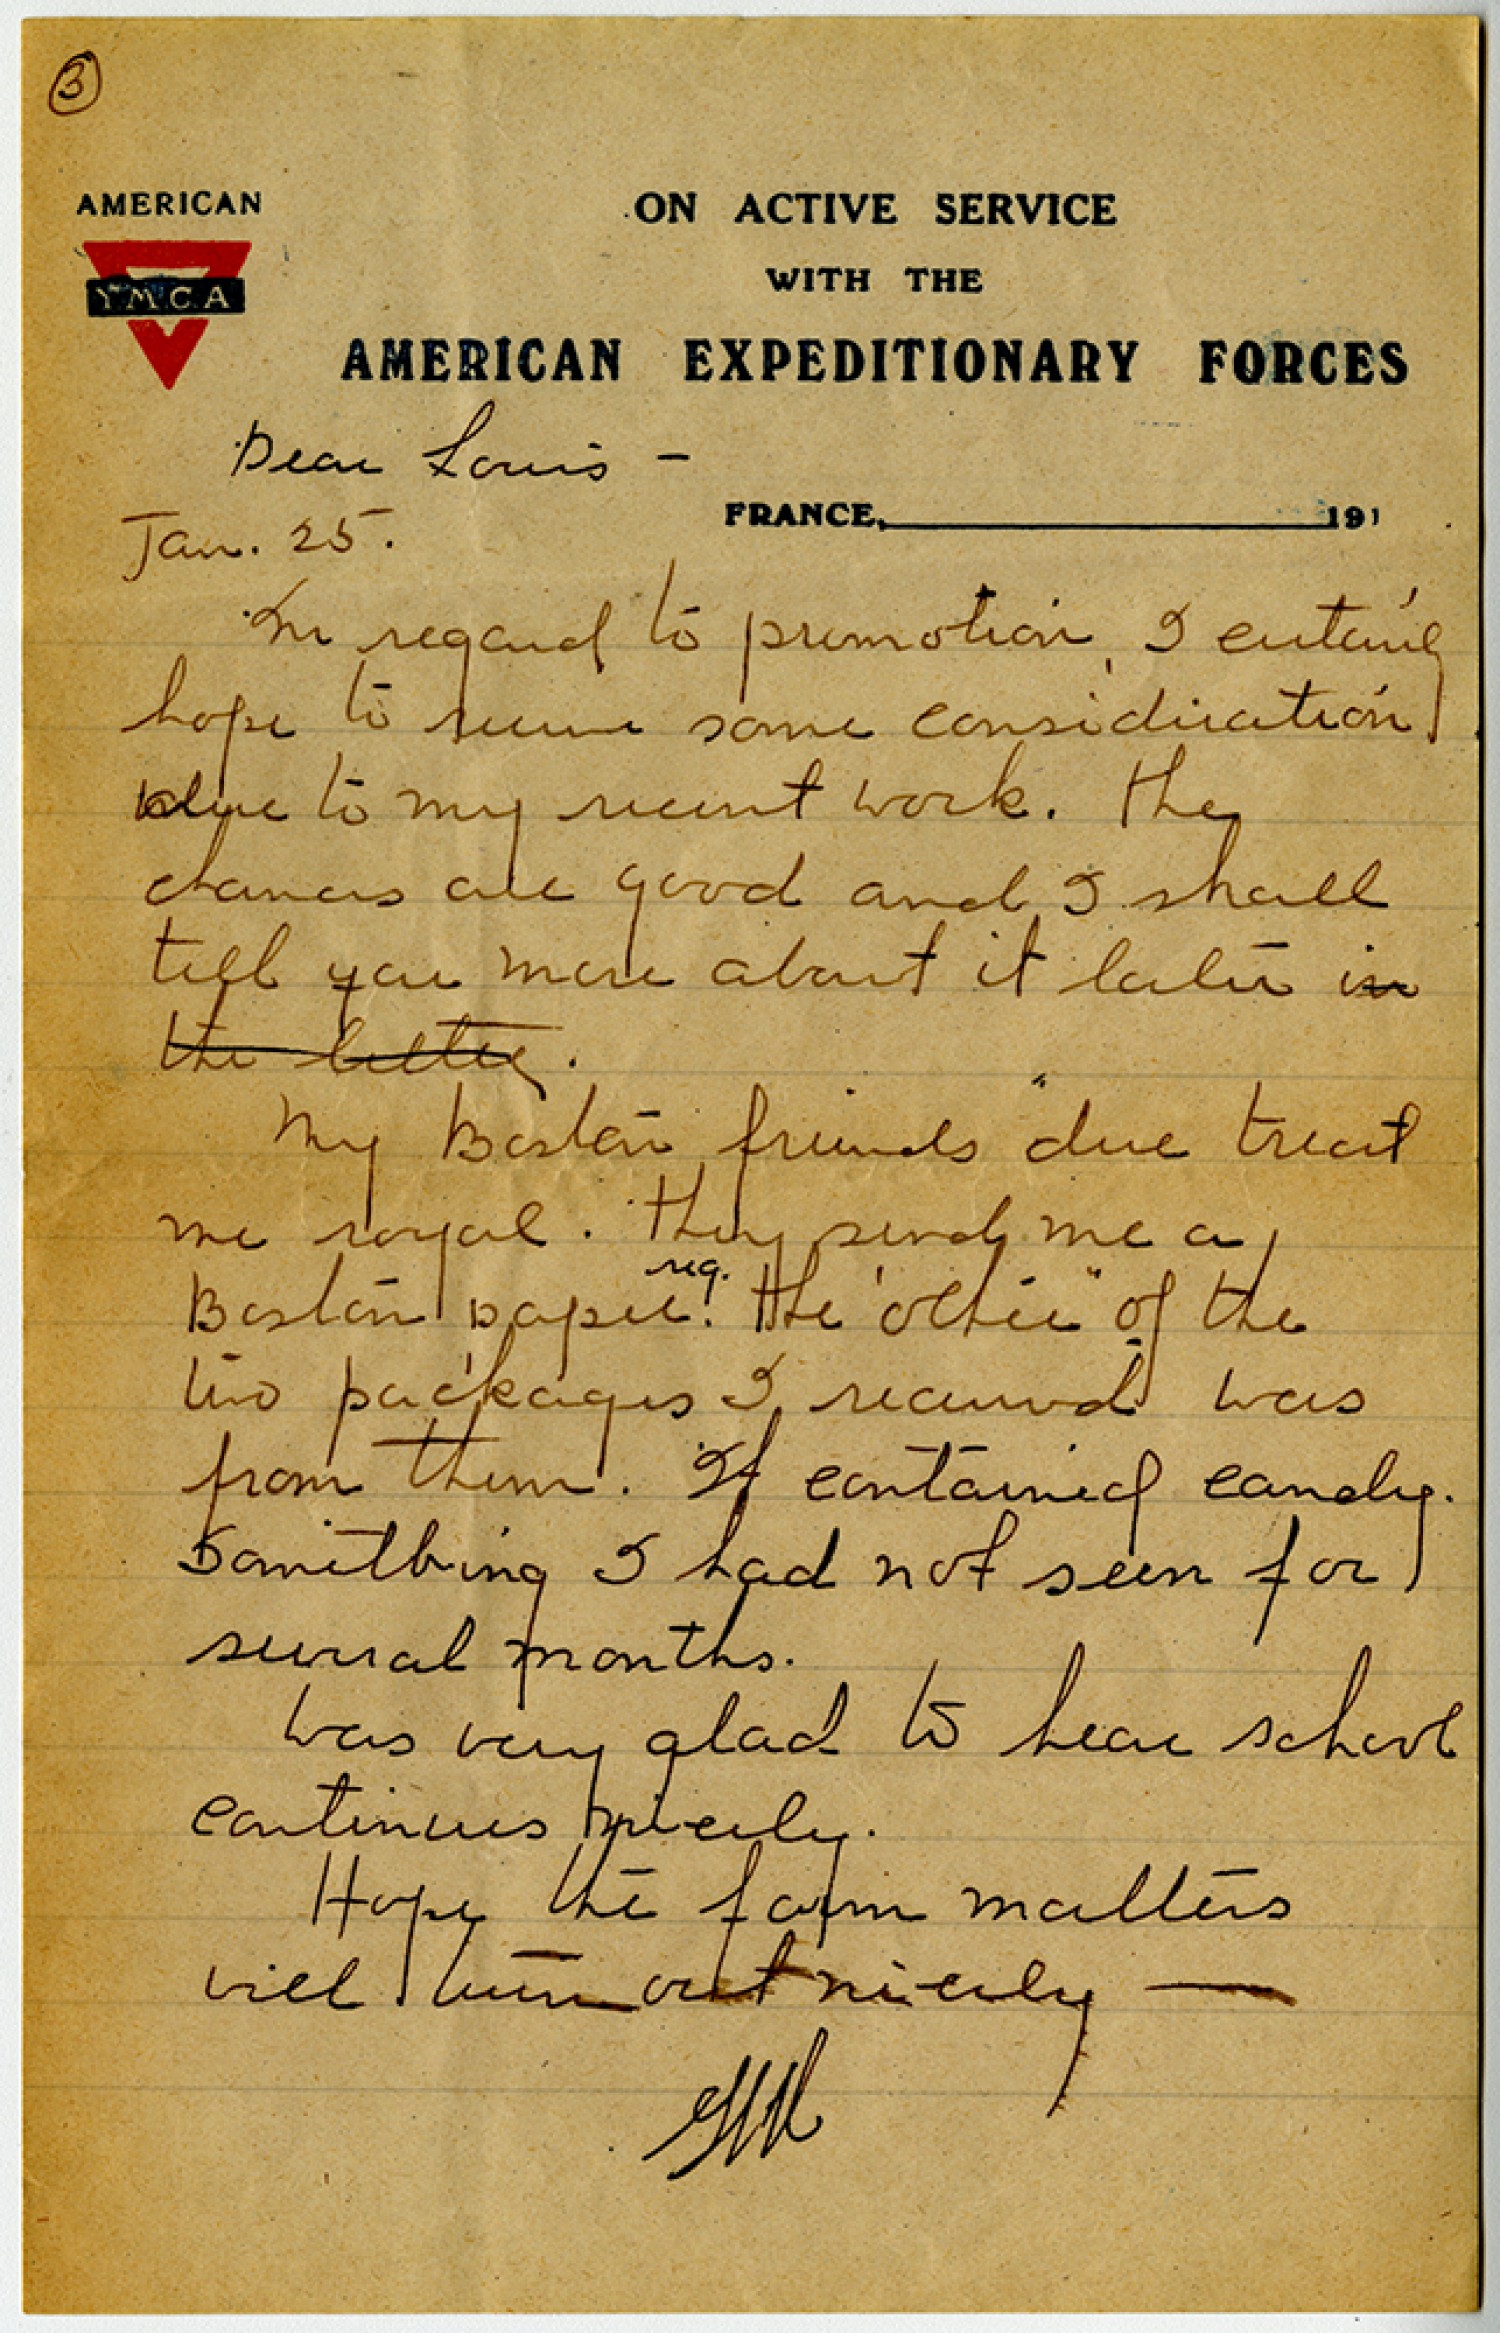 3
AMERICAN
Y.M.C.A
ON ACTIVE SERVICE
WITH THE
AMERICAN EXPEDITIONARY FORCES
Dear Louis –
FRANCE, 191
Jan. 25.
In regard to promotion, I certainly
hope to receive some consideration
due to my recent work. The
chances are good and I shall
tell you more about it later in
the letter.
My Boston friends "due treat
me royal. They send me a
Boston paper reg. The "other" of the
two packages I received was
from them. It contained candy.
Something I had not seen for
several months.
Was very glad to hear school
continues nicely.
Hope the farm matters
will turn out nicely —